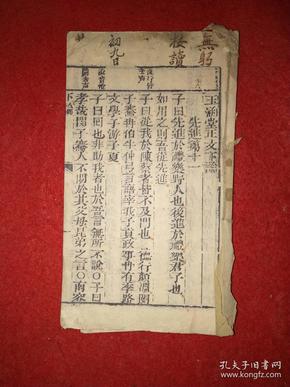 初九日
玉涵堂正文下論
先進第十一
子曰先進於禮樂野人也後進於禮樂君子也
如用之則吾從先進
子曰從我於陳蔡者皆不及門也○德行顏淵閔
子騫冉伯牛仲弓言語宰我子貢政事冉有季路
文學子游子夏
子曰回也非助我者也於吾言無所不說○子曰
孝哉閔子騫人不間於其父母兄弟之言○南容
孔夫子旧书网